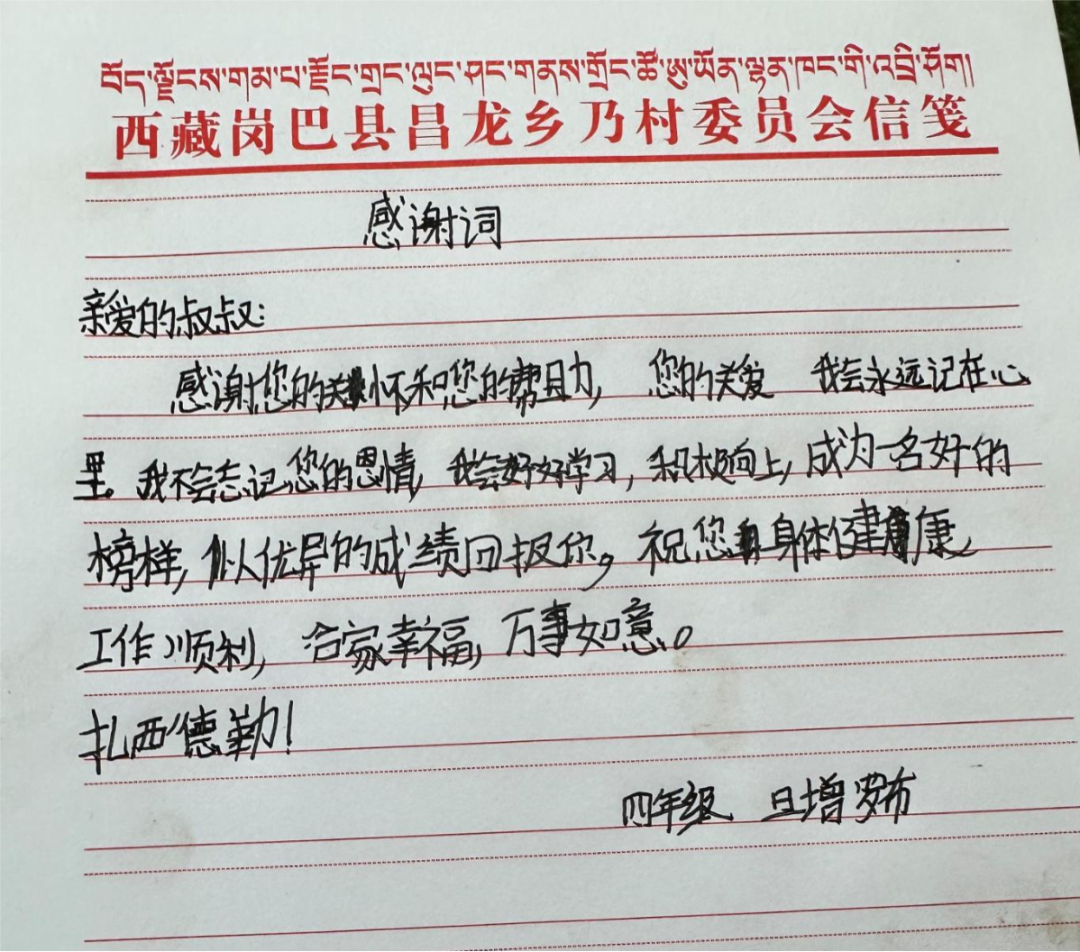 བོད་ལྗོངས་གམ་པ་རྫོང་གྲང་ལུང་ཤང་གནས་གྲོང་ཚོ་ཨུ་ཡོན་ལྷན་ཁང་གི་འབྲི་ཤོག།
西藏岗巴县昌龙乡乃村委员会信笺
感谢词
亲爱的叔叔:
感谢您的关怀和您的帮助, 您的关爱 我会永远记在心
里。我不会忘记您的恩情, 我会好好学习, 积极向上, 成为一名好的
榜样, 以优异的成绩回报你, 祝您身体健康,
工作顺利, 合家幸福, 万事如意。
扎西德勒!
四年级 旦增罗布